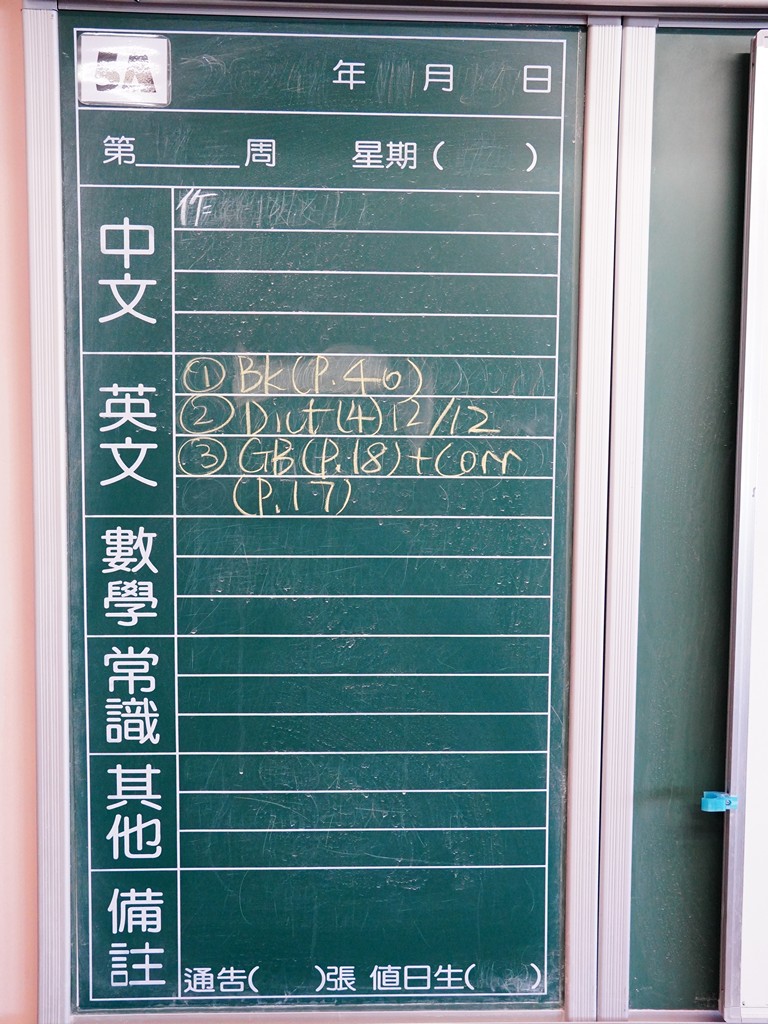 5A
年 月 日
第______周 星期( )
中文
作
英文
① Bk(P.46)
② Dict(4)12/12
③ GB(P.18)+Com
(P.17)
數學
常識
其他
備註
通告( )張 值日生( )